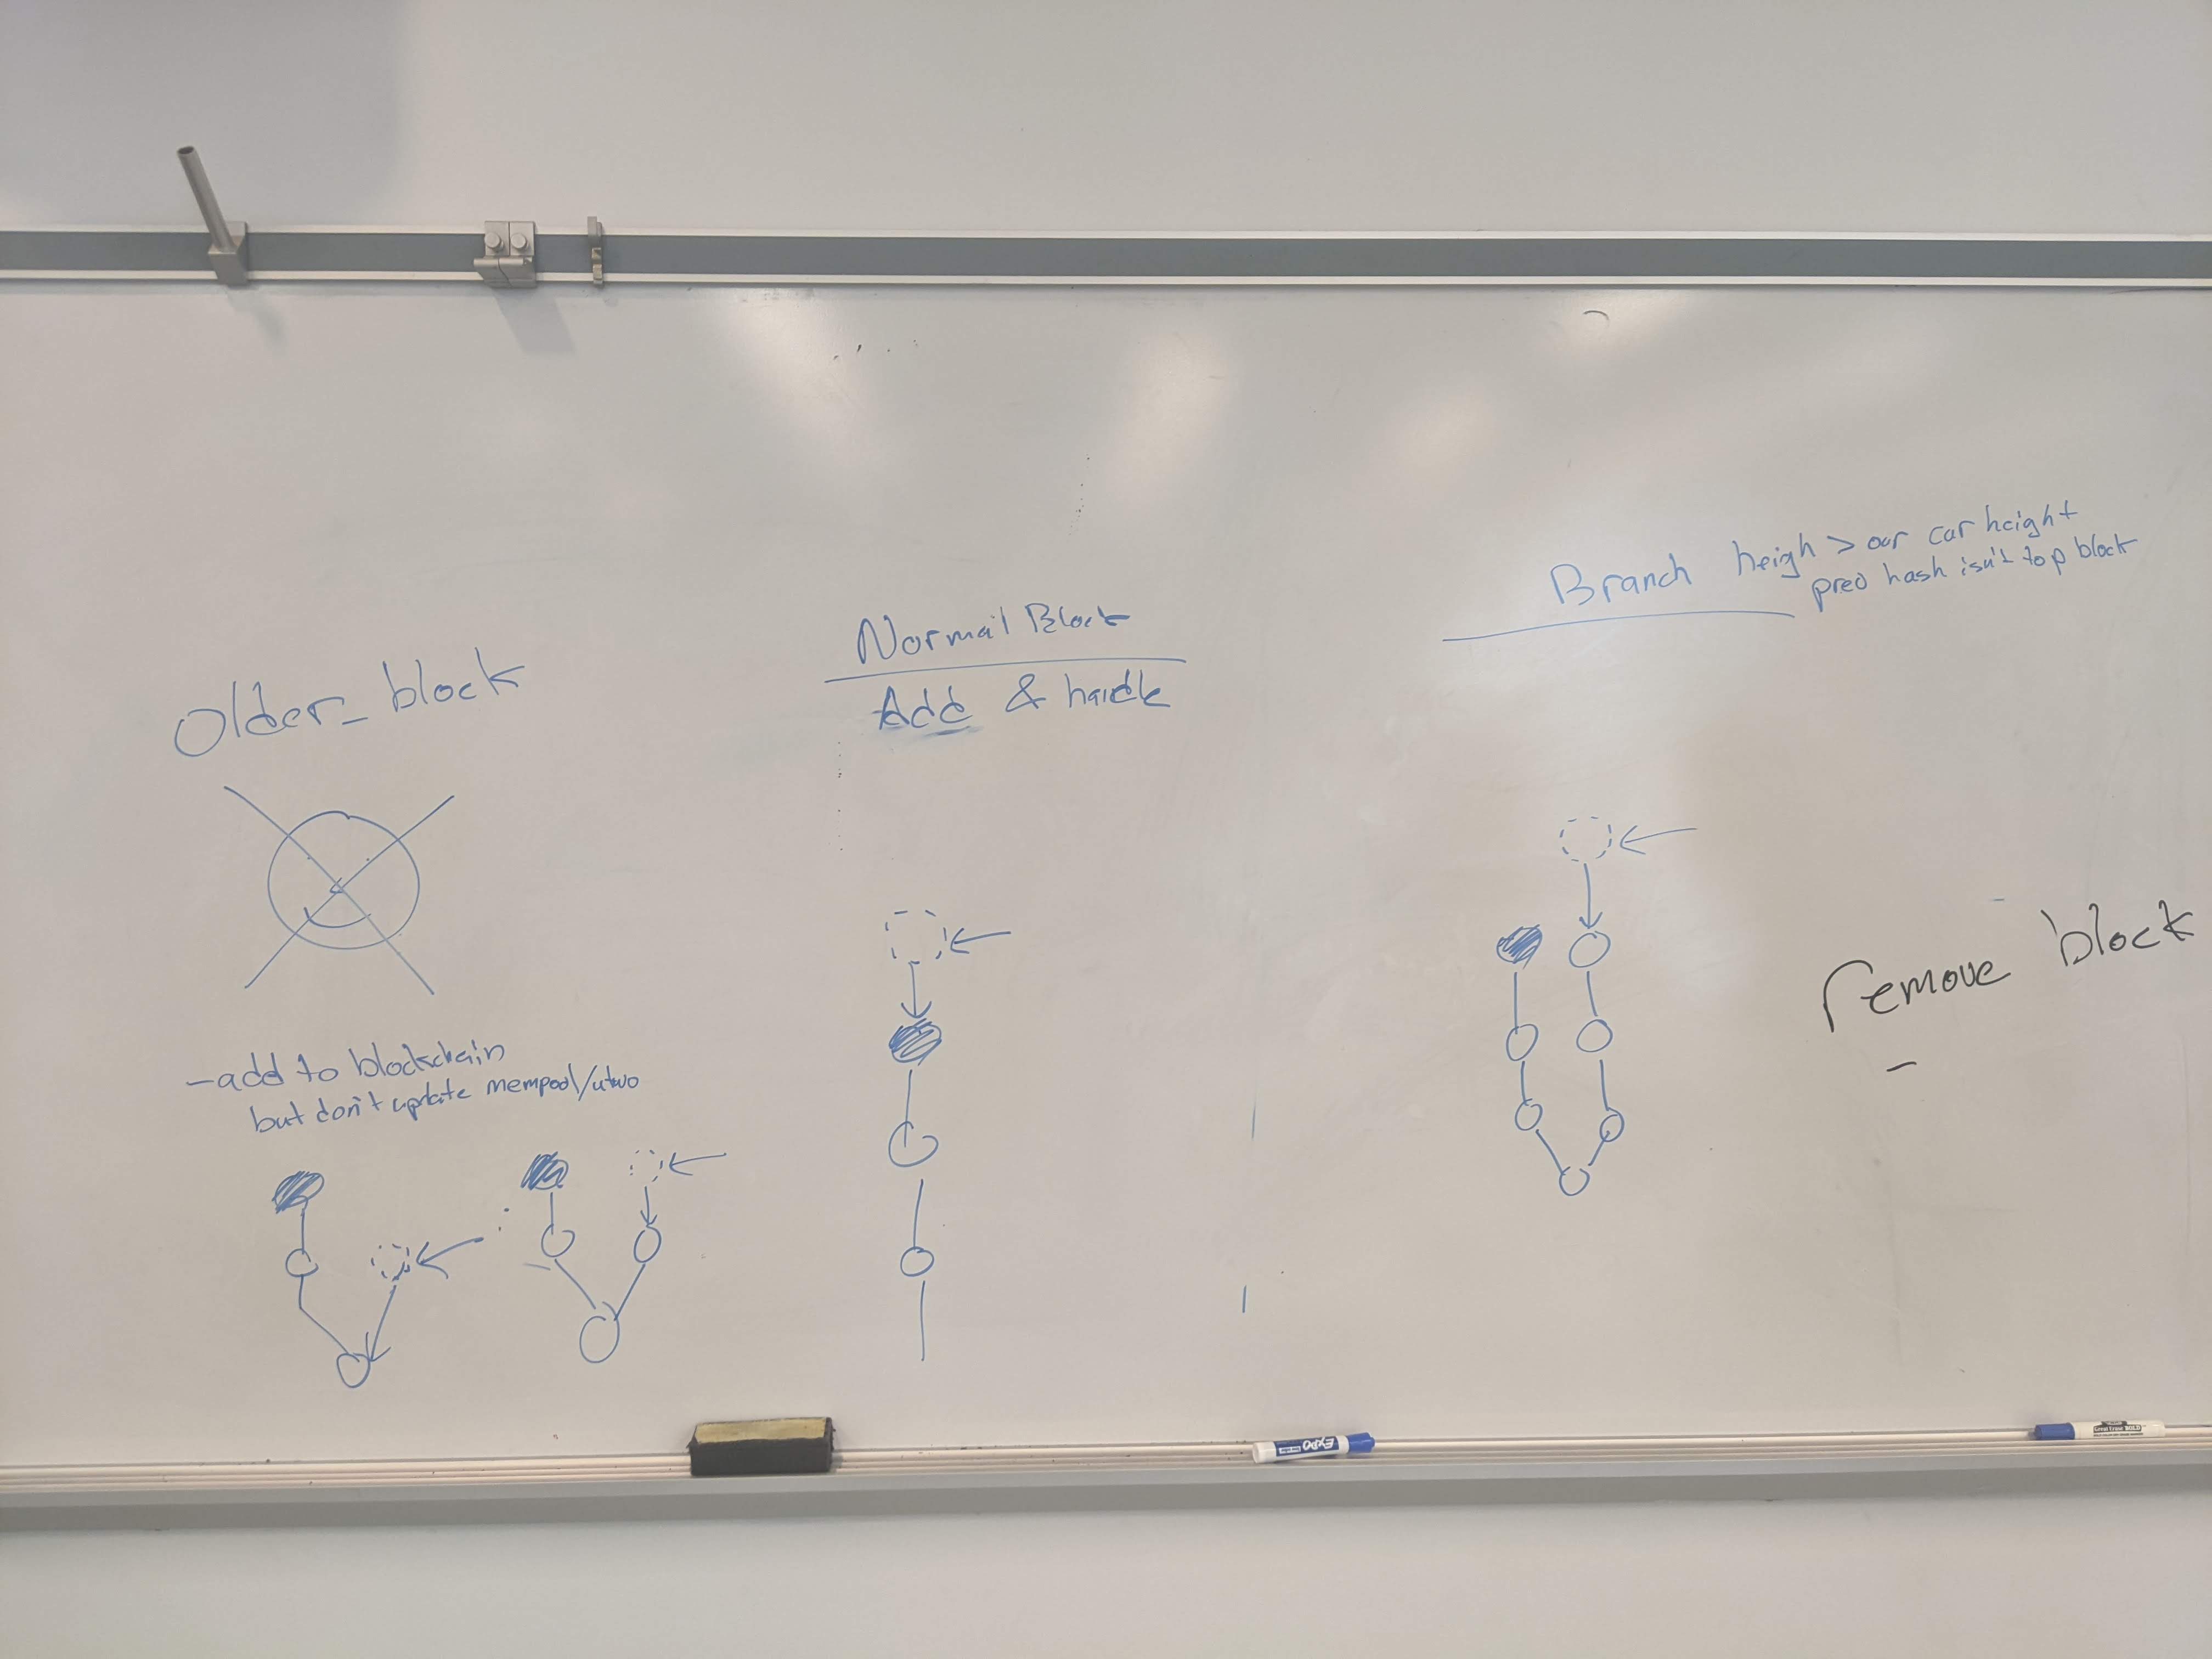 Older_ block
-add to blockchain
but don't update mempool/utxo
Normal Block
Add & handle
Branch heigh > our cur height
prev hash isn't top block
remove block
-
EXPO